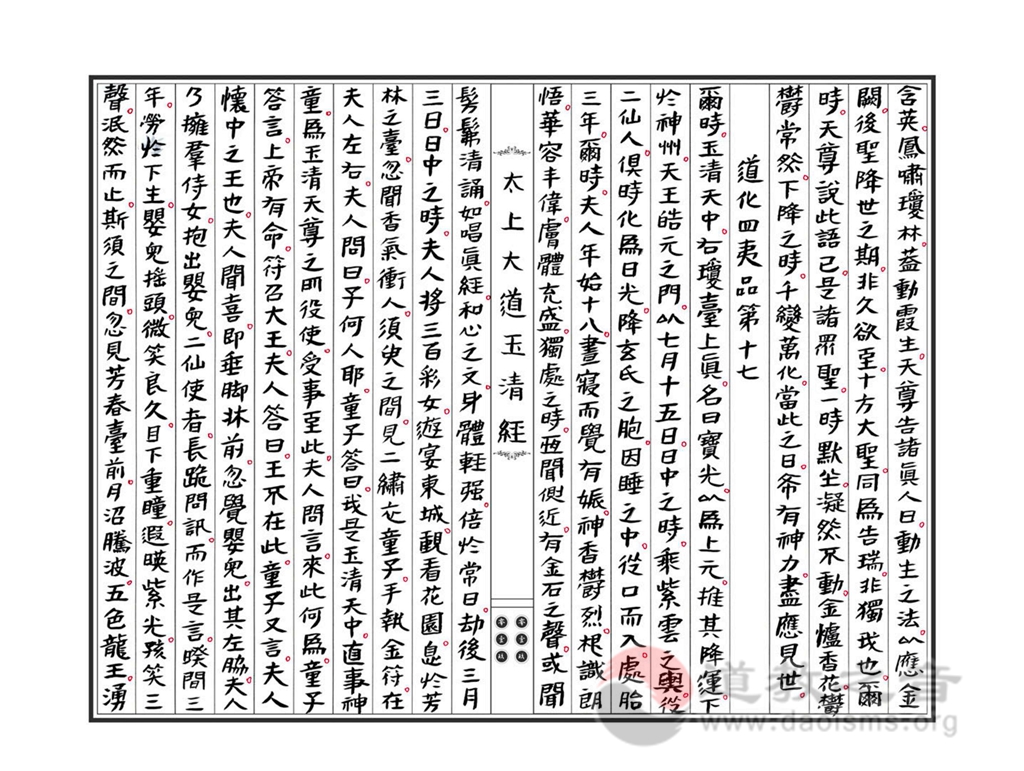 含英鳳嘯瓊林葢動霞生天尊告諸眞人曰動生之法以應金
闕後聖降世之期非久欲至十方大聖同爲告瑞非獨我也爾
時天尊說此語已是諸眾聖一時默坐凝然不動金爐香花鬱
鬱常然下降之時千變萬化當此之日爷有神力盡應見世
道化四夷品第十七
爾時玉清天中右瓊臺上眞名曰寶光以爲上元推其降運下
於神州天王皓元之門以七月十五日日中之時乘紫雲之輿從
二仙人俱時化爲日光降玄氏之胞因睡之中從口而入處胎
三年爾時夫人年始十八晝寢而覺有娠神香鬱烈根識朗
悟華容丰偉膚體充盛獨處之時𢛢聞側近有金石之聲或聞
太上大道玉清經
髣髴清誦如唱眞經和心之文身體輕强倍於常日劫後三月
三日日中之時夫人將三百彩女遊宴東城觀看花園息於芳
林之臺忽聞香氣衝人須臾之間見二繡衣童子手執金符在
夫人左右夫人問曰子何人耶童子答曰我是玉清天中直事神
童爲玉清天尊之所役使受事至此夫人問言來此何爲童子
答言上帝有命符召大王夫人答曰王不在此童子又言夫人
懷中之王也夫人聞喜即垂脚牀前忽覺嬰兒出其左脇夫人
乃擁羣侍女抱出嬰兒二仙使者長跪問訊而作是言暌間三
年勞於下生嬰兒摇頭微笑良久目下重瞳遐暎紫光孩笑三
聲泯然而止斯須之間忽見芳春臺前月沼騰波五色龍王湧
道教之音
www.daoisms.org